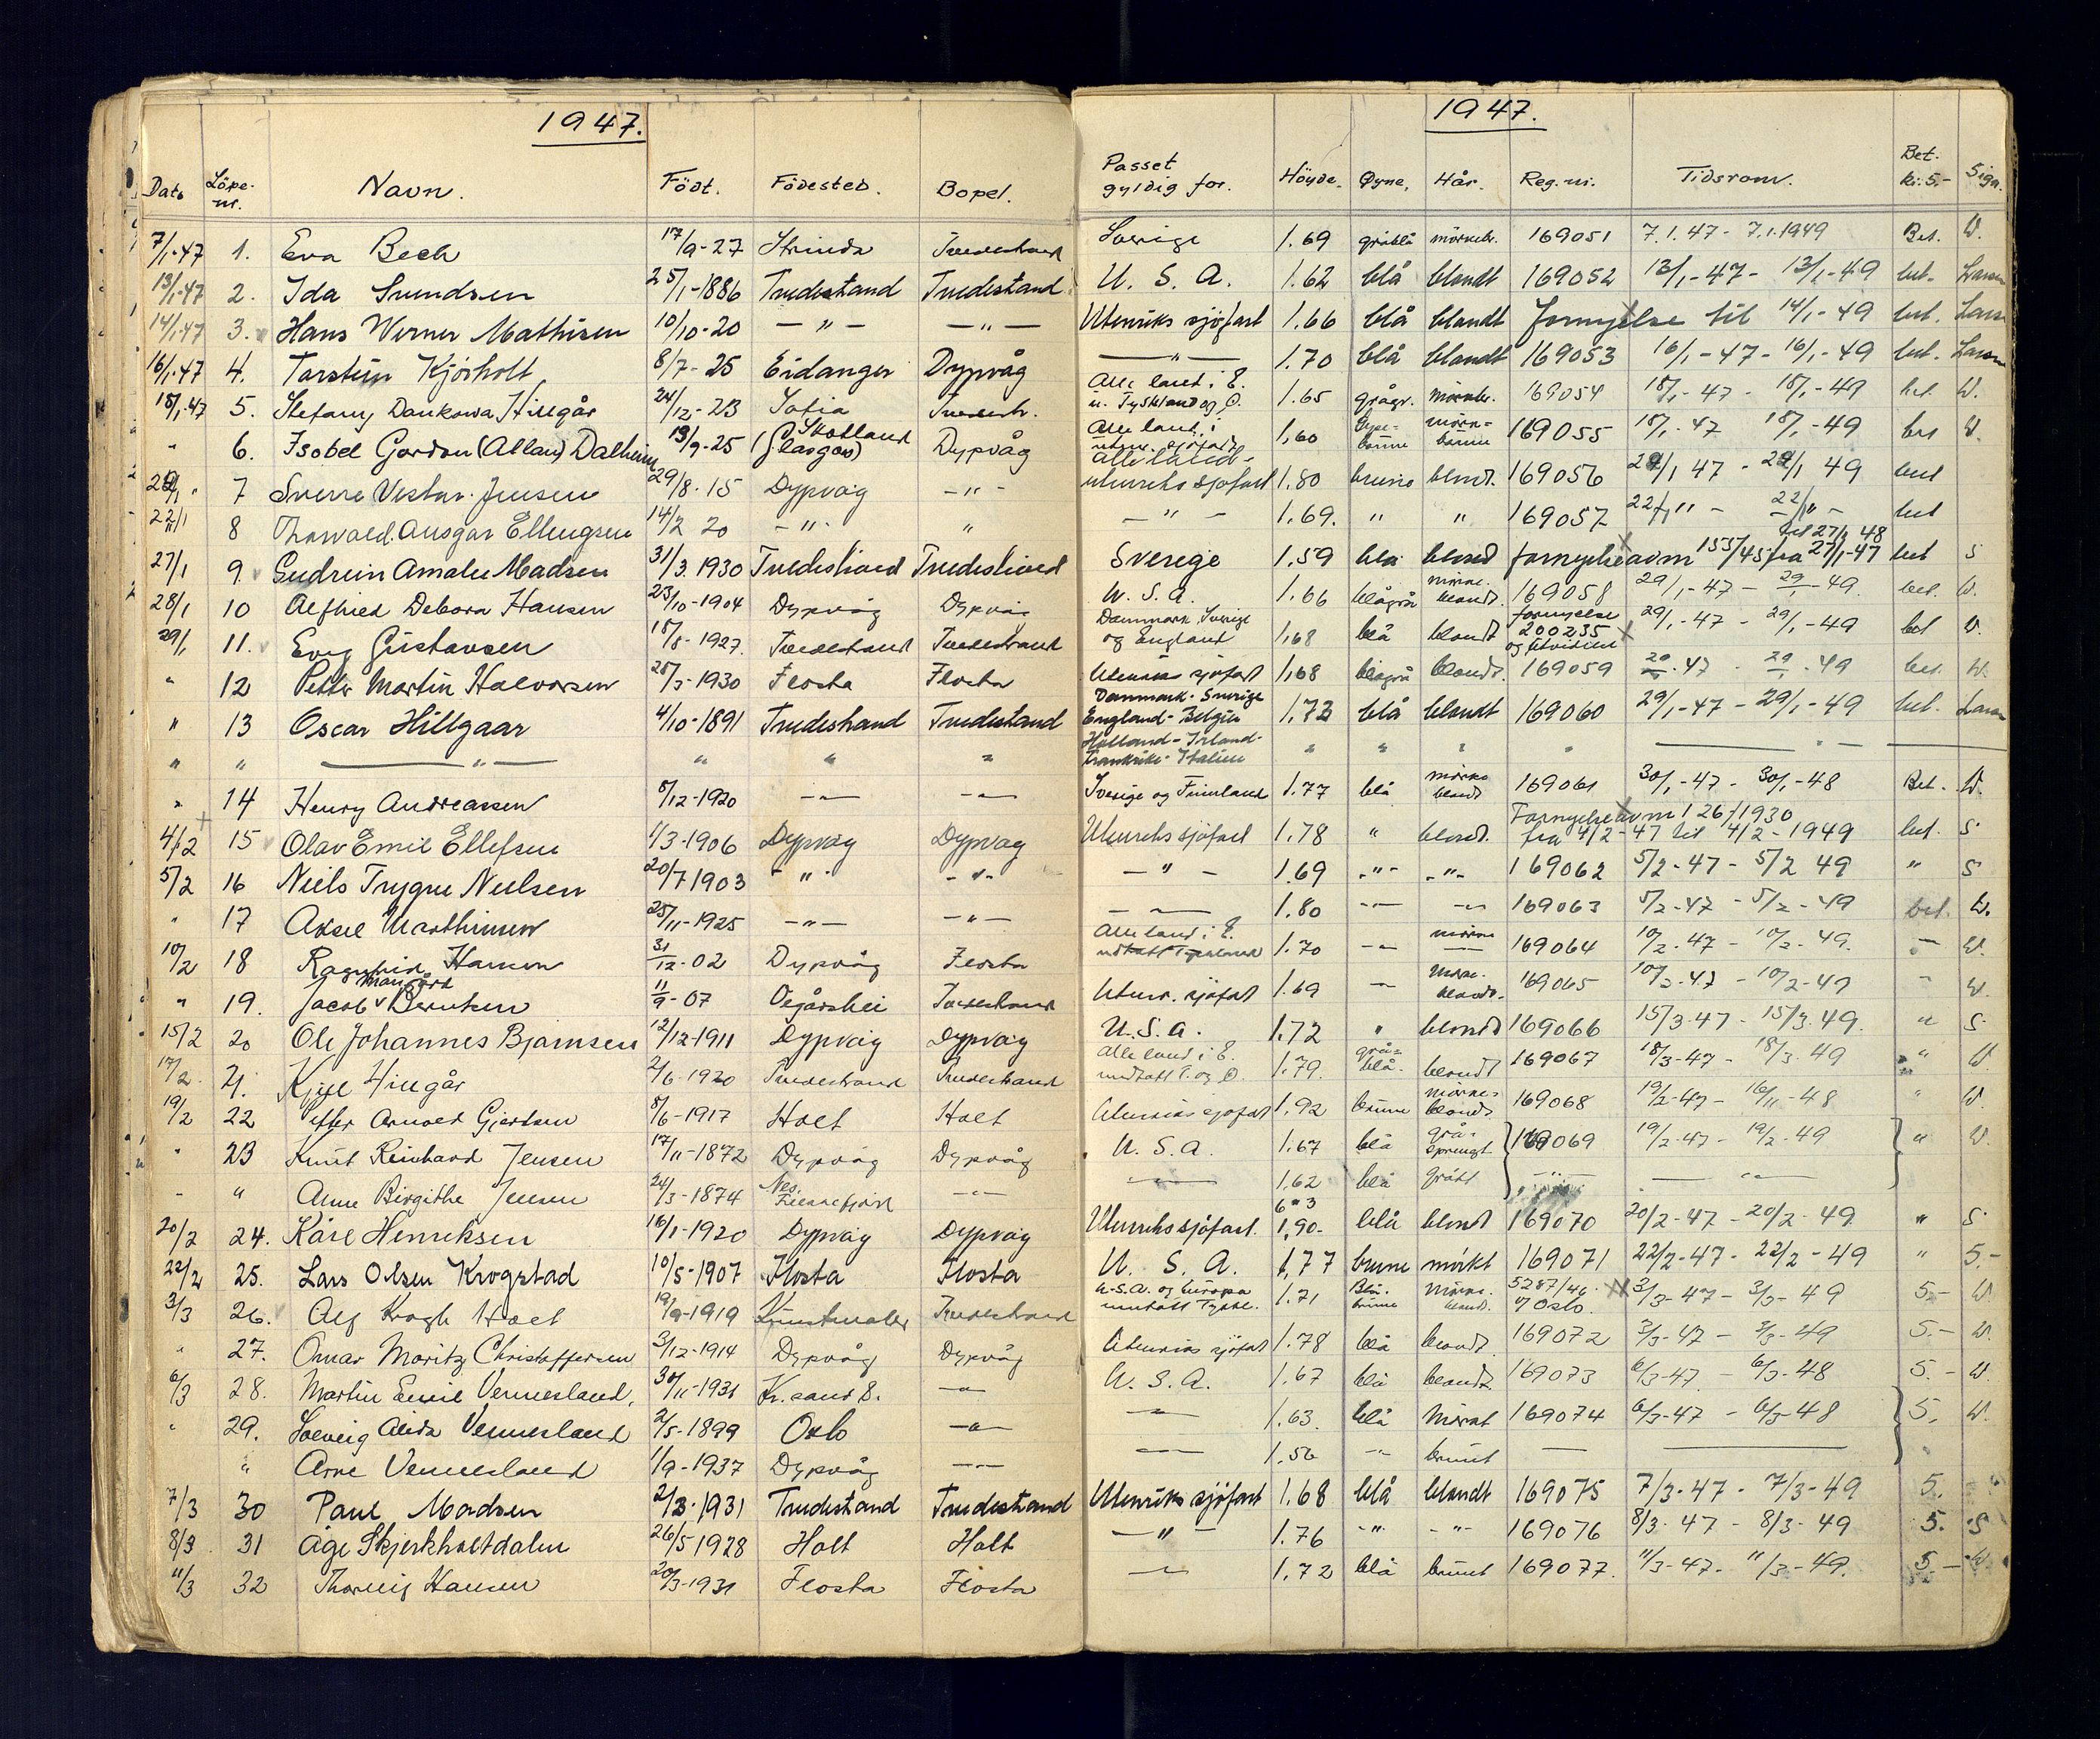 1947.
1947.
Dato Löpe-nr. Navn. Födt. Födested. Bopel. Passet gyldig for. Höyde. Øyne. Hår. Reg.nr. Tidsrom. Bet. kr. 5.- Sign.
7/1-47 1. Eva Bech 17/9-27 Strinda Tvedestrand Sverige 1.69 gråblå mörkebr. 169051 7.1.47 - 7.1.1949 Bet. W.
13/1-47 2. Ida Svendsen 25/1-1886 Tvedestrand Tvedestrand U. S. A. 1.62 blå blondt 169052 13/1-47 - 13/1-49 bet. Larsen
14/1-47 3. Hans Werner Mathisen 10/10-20 — " — — " — Utenriks sjöfart 1.66 blå blondt Fornyelse til 14/1-49 bet. Larsen
16/1-47 4. Torstein Kjörholt 8/7-25 Eidanger Dypvåg — " — 1.70 blå blondt 169053 16/1-47 - 16/1-49 bet. Larsen
18/1-47 5. Stefany Dankowa Hillgår 24/12-23 Sofia Tvedestr. Alle land i E. u. Tyskland og Ö. 1.65 grågr. mörkbr. 169054 18/1-47 - 18/1-49 bet. W.
" 6. Isobel Gordon (Allan) Dalheim 13/9-25 Skotland (Glasgow) Dypvåg Alle land i utenr. sjöfart 1,60 lyse-brune mörk-brune 169055 18/1-47 18/1-49 bet W.
22/1 " 7 Sverre Vestar. Jensen 29/8-15 Dypvåg — " — Alle land - utenriks sjöfart 1.80 brune blond. 169056 22/1 47 - 22/1 49 bet
22/1 8 Thorvald. Ansgar Ellingsen 14/2 20 — " — " — " — 1.69. " " 169057 22/1 " - 22/1 " - bet
27/1 9. Gudrun Amalie Madsen 31/3. 1930 Tvedestrand Tvedestrand Sverige 1,59 blå blond fornyelse av nr 153/45 fra 27/1-47 til 27/1 48 bet S
28/1 10 Alfhild Debora Hansen 23/10-1904 Dypvåg Dypvåg U. S. A. 1.66 blågrå mörke-blondt. 169058 29/1-47 - 29/1-49. bet. W.
29/1 11. Evy Gustavsen 18/8-1927. Tvedestrand Tvedestrand Danmark, Sverige og England 1,68 blå blondt fornyelse 200235 og utvidelse 29/1-47 - 29/1-49 bet W.
" 12 Petter Martin Halvorsen 28/3-1930 Flosta Flosta Utenriks sjöfart 1,68 blågrå blondt. 169059 29/1-47 - 29/1-49 bet. W.
" 13 Oscar Hillgaar 4/10-1891 Tvedestrand Tvedestrand Danmark - Sverige England - Belgia 1,73 blå blondt 169060 29/1-47 - 29/1-49 bet. Larsen
" " — " — " " " Holland - Irland - Frankrike - Italien " " " " — " —
" 14 Henry Andreassen 8/12-1920 — " — — " — Sverige og Finnland 1.77 blå mörke blond 169061 30/1-47 - 30/1-48 Bet. W.
4/2 15 Olav Emil Ellefsen 1/3-1906 Dypvåg Dypvåg Utenriks sjöfart 1.78 " blond. Fornyelse av nr 126/1930 fra 4/2-47 til 4/2-1949 bet. S
5/2 16 Niels Trygve Nielsen 20/7 1903 — " — — " — — " — 1.69 — " — — " — 169062 5/2-47 - 5/2 49 " S
" 17 Aksel Marthinsen 25/11-1925 — " — — " — — " — 1.80 — " — — " — 169063 5/2-47 - 5/2-49 bet. W.
10/2 18 Ragnhild Hansen 31/12-02 Dypvåg Flosta Alle land i E. undtatt Tyskland 1.70 — " — mörke 169064 10/2-47 - 10/2-49. — " — W.
" 19. Jacob Mangård Berntsen 11/9-07 Vegårshei Tvedestrand Utenr. sjöfart 1.69 — " — mörke-blondt. 169065 10/2-47 - 10/2-49 " W.
15/2 20 Ole Johannes Bjørnsen 12/12-1911 Dypvåg Dypvåg U.S.a. 1.72 " blond 169066 15/3-47 - 15/3-49. " S
17/2. 21. Kjell Hillgår 2/6-1920 Tvedestrand Tvedestrand Alle land i E. undtatt T. og Ö. 1.79. grå-blå. blondt 169067 18/3-47 - 18/3-49 " W
19/2 22 Petter Arnold Gjertsen 8/6-1917 Holt Holt Utenriks sjöfart 1,92 brune mörke-blondt 169068 19/2-47 - 16/11-48 " W.
" 23 Knut Reinhard Jensen 17/11-1872 Dypvåg Dypvåg U. S. A. 1.67 blå grå-sprengt 169069 19/2-47 - 19/2-49 " W.
- " Anne Birgithe Jensen 24/3-1874 Nes, — " — — " — 1,62 blå grått — " — — " —
20/2 24. Kåre Henriksen 16/1-1920 Dypvåg Dypvåg Utenriks sjöfart. 6"3 1,90- blå blond 169070 20/2-47 - 20/2-49. " S
22/2 25. Lars Olsen Krogstad 10/5-1907 Flosta Flosta U. S. A. 1,77 brune mörkt 169071 22/2-47 - 22/2-49 " S.-
3/3 26. Alf Krogh Holt 19/9-1919 Tvedestrand U.S.A. og Europa unntatt Tyskl. 1.71 Blå-brune Mörke-blond. 5287/46. Oslo. 3/3-47 - 3/3-49 5.- W
" 27. Omar Moritz Christoffersen 31/12-1914 Dypvåg Dypvåg Utenriks sjöfart 1.78 blå blondt. 169072 3/3-47 - 3/3-49 5.- W.
6/3 28. Martin Emil Vennesland. 30/11-1931 Kr.sand S. — " — U. S. A. 1.67 blå blondt. 169073 6/3-47 - 6/3-48 5.- W.
" 29. Solveig Alida Vennesland 2/5-1899 Oslo — " — — " — 1.63. blå Mörkt 169074 6/3-47 - 6/3-48 5. W.
" Arne Vennesland 1/9-1937 Dypvåg — " — — " — 1.56 — " — brunt —
7/3 30 Paul Madsen 2/3-1931 Tvedestrand Tvedestrand Utenriks sjöfart 1.68 blå blondt 169075 7/3-47 - 7/3-49 5.
8/3 31 Åge Skjerkholtdalen 26/5-1928 Holt Holt — " — 1.76 — " — — " — 169076 8/3-47 - 8/3-49 5. S
11/3 32 Thorleif Hansen 20/3-1931 Flosta Flosta — " — 1,72 blå brunt 169077. 11/3-47. - 11/3-49. 5- W